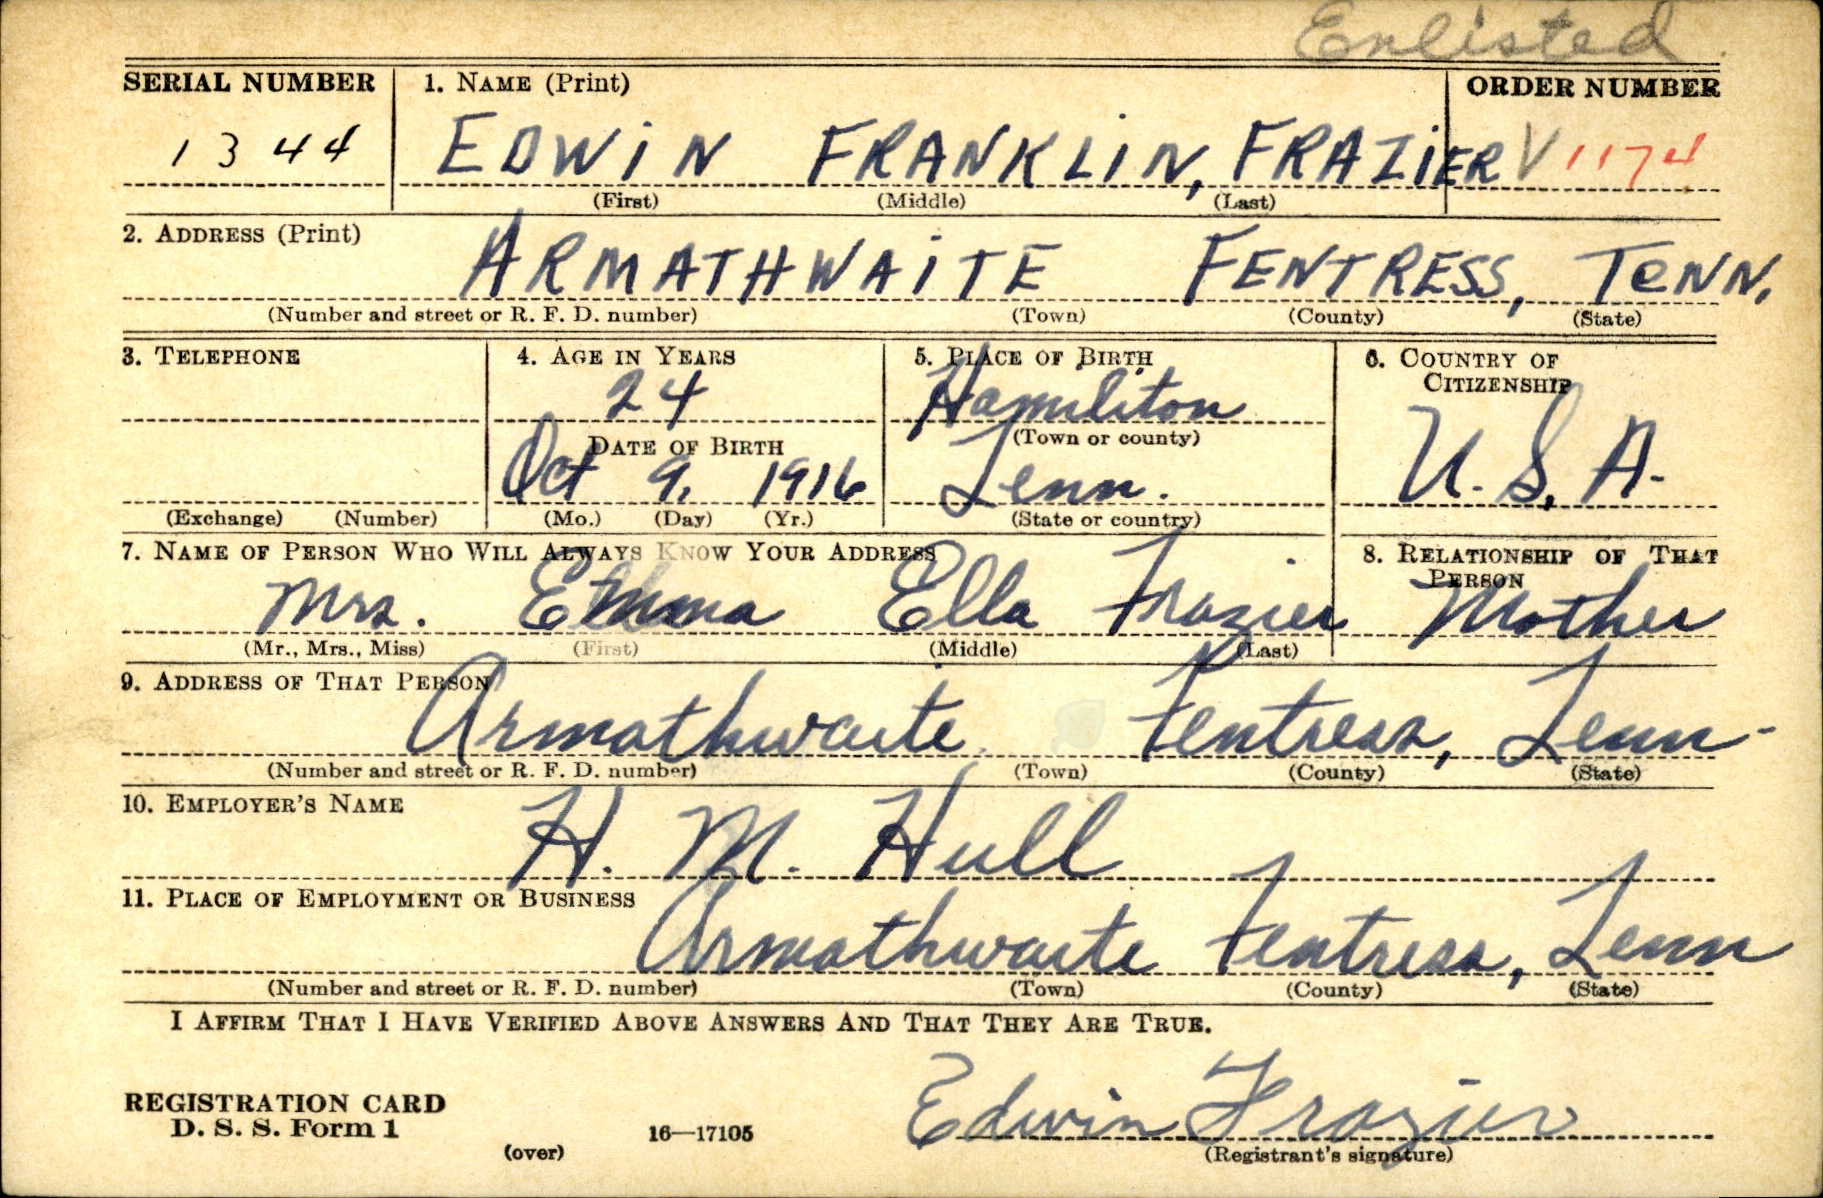 Enlisted
SERIAL NUMBER 1. NAME (Print) ORDER NUMBER
1344 EDWIN FRANKLIN, FRAZIER V 1174
(First) (Middle) (Last)
2. ADDRESS (Print)
ARMATHWAITE FENTRESS, TENN.
(Number and street or R. F. D. number) (Town) (County) (State)
3. TELEPHONE 4. AGE IN YEARS 5. PLACE OF BIRTH 6. COUNTRY OF
CITIZENSHIP
24 Hamiliton
DATE OF BIRTH (Town or county)
Oct 9, 1916 Tenn. U.S.A.
(Exchange) (Number) (Mo.) (Day) (Yr.) (State or country)
7. NAME OF PERSON WHO WILL ALWAYS KNOW YOUR ADDRESS 8. RELATIONSHIP OF THAT
PERSON
Mrs. Emma Ella Frazier Mother
(Mr., Mrs., Miss) (First) (Middle) (Last)
9. ADDRESS OF THAT PERSON
Armathwaite Fentress, Tenn.
(Number and street or R. F. D. number) (Town) (County) (State)
10. EMPLOYER'S NAME
H. M. Hull
11. PLACE OF EMPLOYMENT OR BUSINESS
Armathwaite Fentress, Tenn
(Number and street or R. F. D. number) (Town) (County) (State)
I AFFIRM THAT I HAVE VERIFIED ABOVE ANSWERS AND THAT THEY ARE TRUE.
REGISTRATION CARD
D. S. S. Form 1 Edwin Frazier
(over) 16—17105 (Registrant's signature)